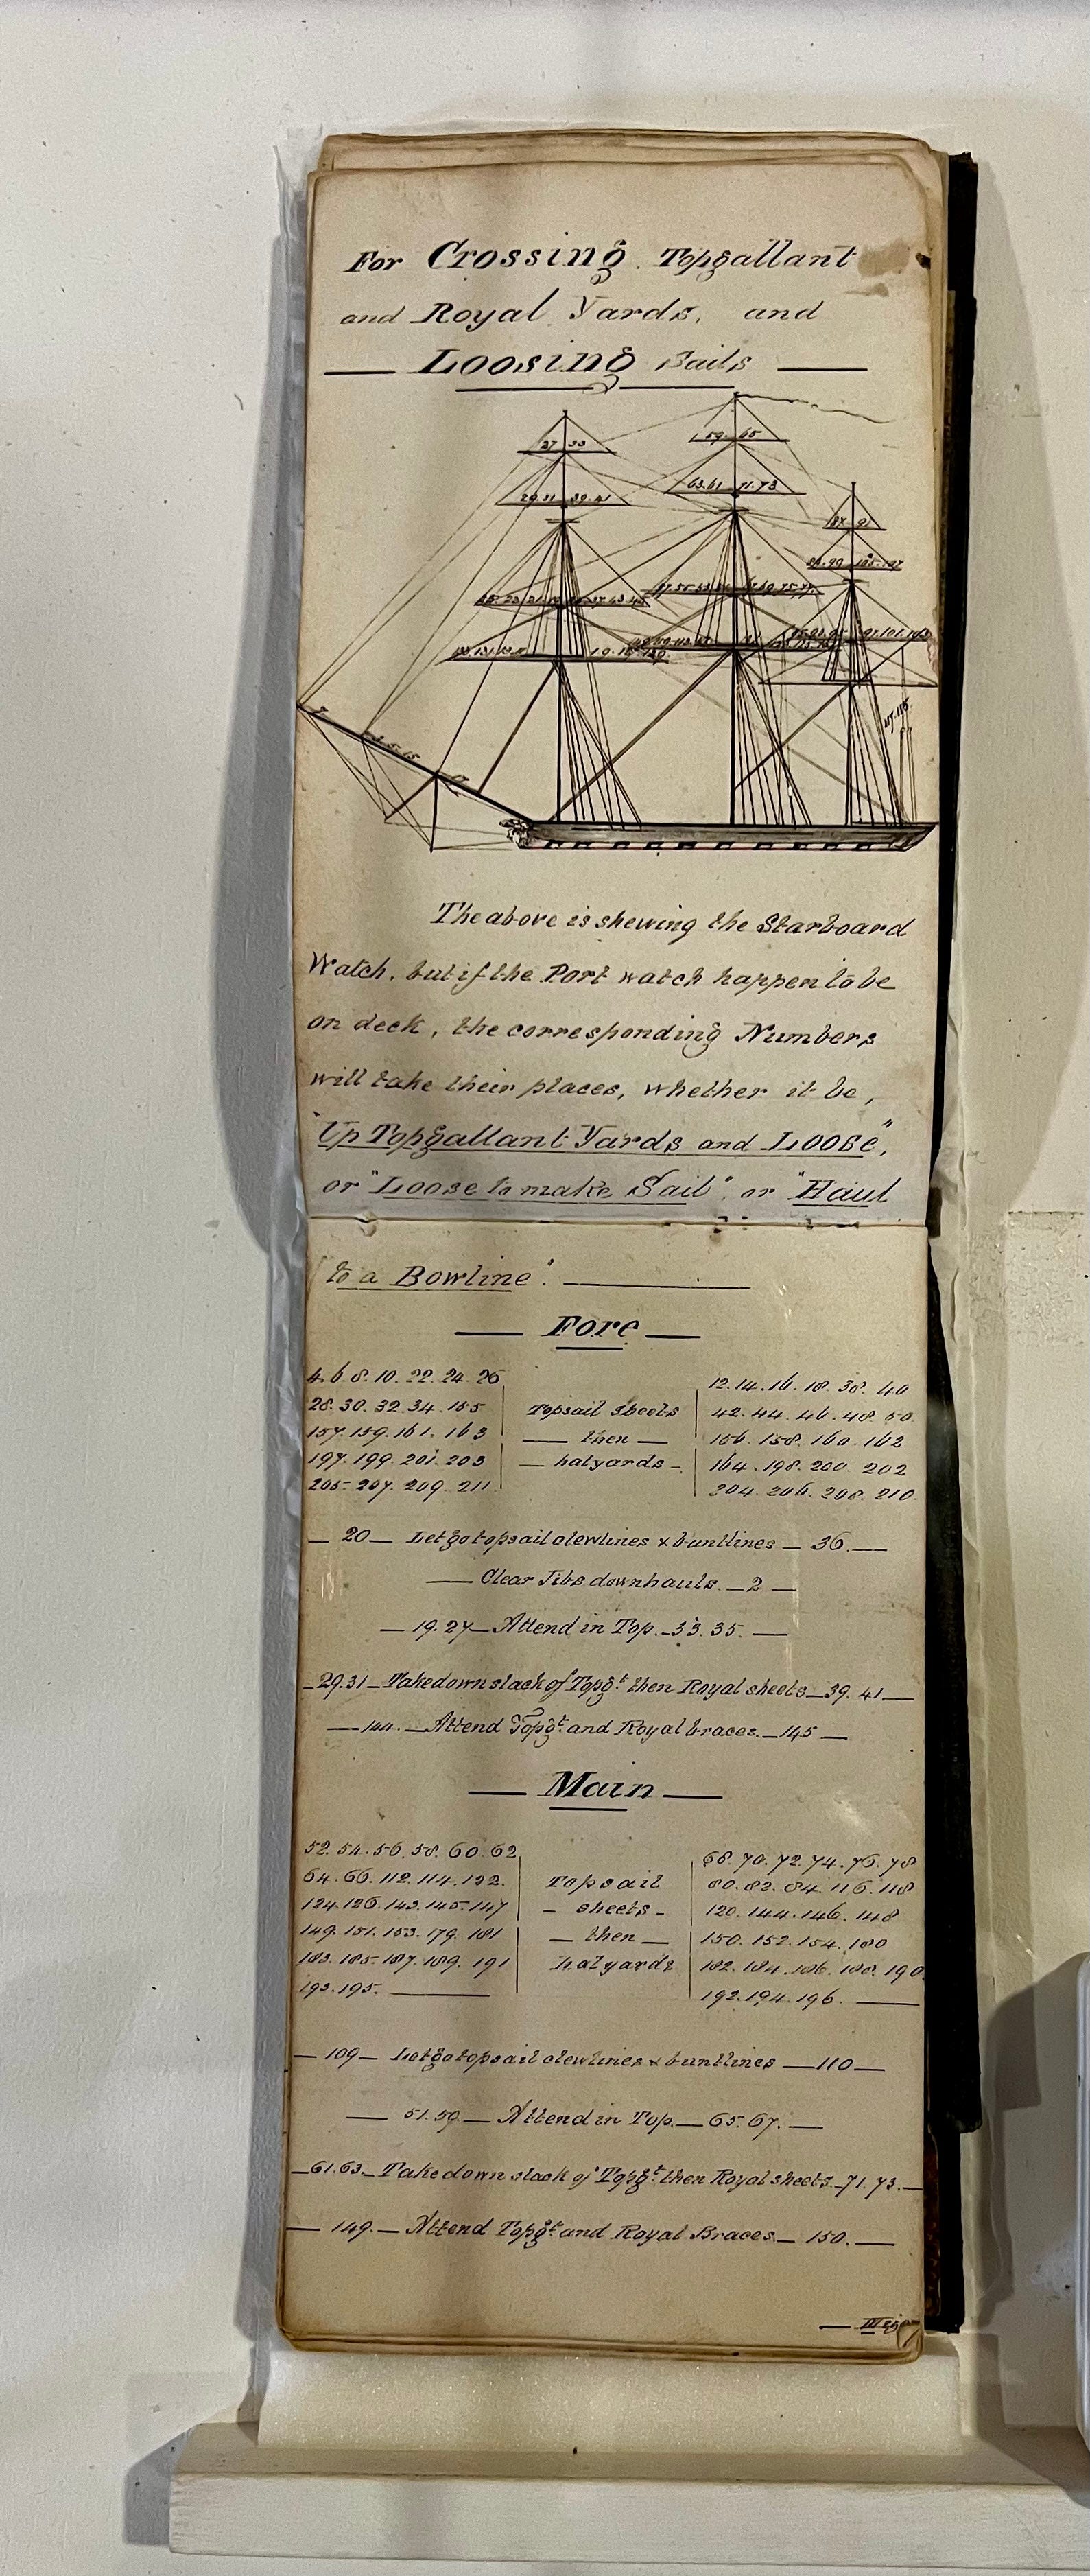 For Crossing Topgallant
and Royal Yards, and
Loosing Sails
27 33
59 65
29.31 39.41
63.61 71.73
The above is shewing the Starboard
Watch, but if the Port watch happen to be
on deck, the corresponding Numbers
will take their places, whether it be,
"Up Topgallant Yards and Loose",
or "Loose to make Sail", or "Haul
to a Bowline".
Fore
4. 6. 8. 10. 22. 24. 26
28. 30. 32. 34. 155
157. 159. 161. 163
197. 199. 201. 203
205. 207. 209. 211
Topsail Sheets
— then —
— halyards —
12. 14. 16. 18. 38. 40
42. 44. 46. 48. 50
156. 158. 160. 162
164. 198. 200. 202
204. 206. 208. 210
— 20 — Let go topsail clewlines & buntlines — 36. —
— Clear Jibs downhauls. — 2 —
— 19. 27 — Attend in Top. — 33. 35. —
— 29. 31 — Take down slack of Topgt. then Royal sheets — 39. 41 —
— 144. — Attend Topgt. and Royal braces. — 145 —
— Main —
52. 54. 56. 58. 60. 62
64. 66. 112. 114. 122.
124. 126. 143. 145. 147
149. 151. 153. 179. 181
183. 185. 187. 189. 191
193. 195. —
Topsail
— sheets —
— then —
halyards
68. 70. 72. 74. 76. 78
80. 82. 84. 116. 118
120. 144. 146. 148
150. 152. 154. 180
182. 184. 186. 188. 190
192. 194. 196. —
— 109 — Let go topsail clewlines & buntlines — 110 —
— 51. 59. — Attend in Top. — 65. 67. —
— 61. 63. — Take down slack of Topgt. then Royal sheets. — 71. 73. —
— 149. — Attend Topgt. and Royal Braces. — 150. —